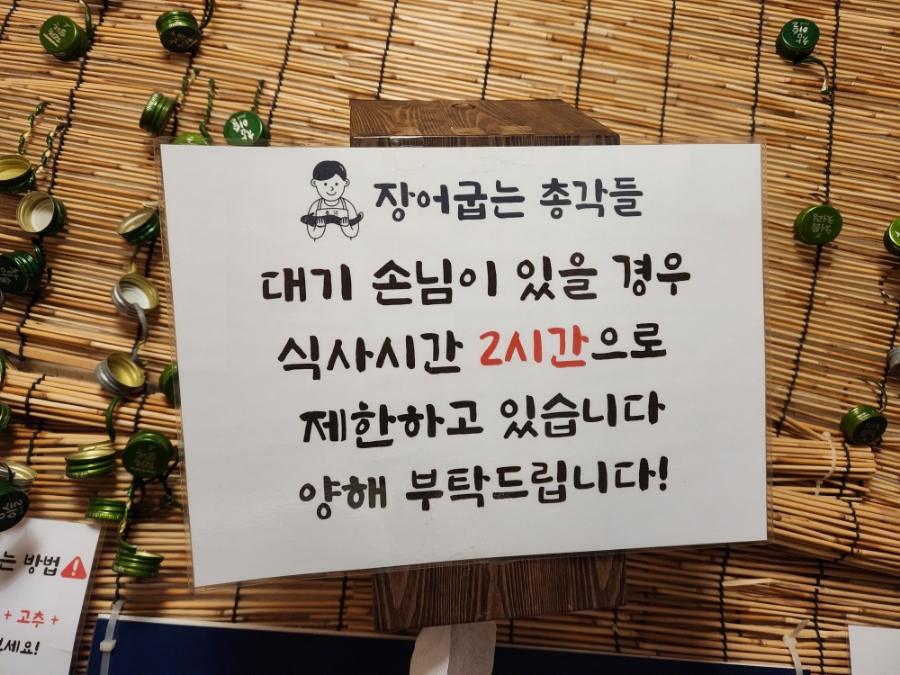 장어굽는 총각들
대기 손님이 있을 경우
식사시간 2시간으로
제한하고 있습니다
양해 부탁드립니다!
는 방법
+ 고추 +
세요!